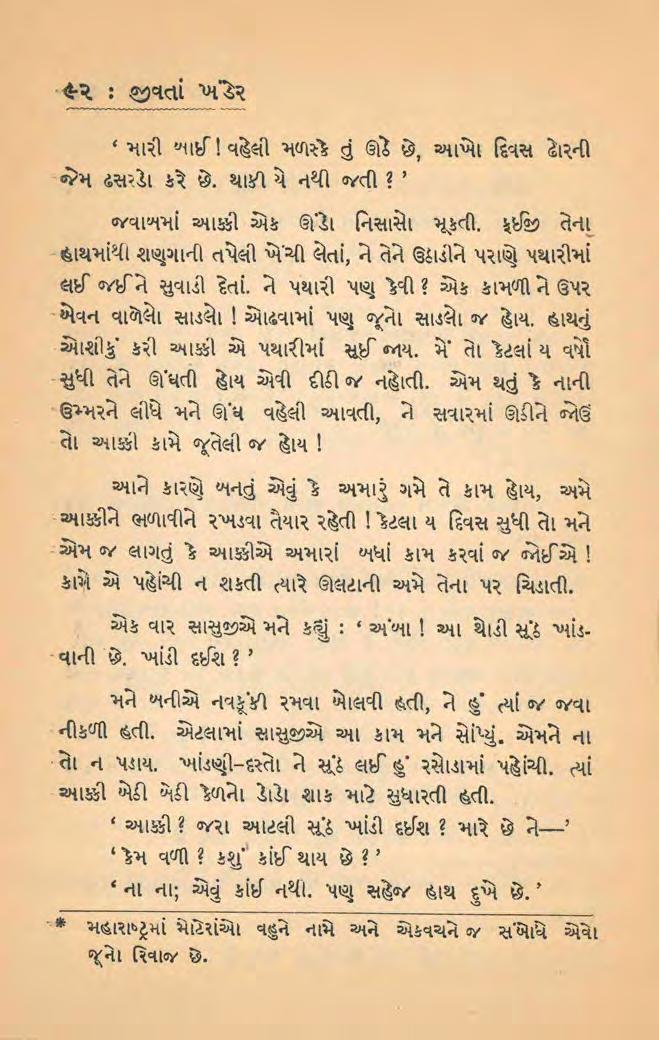 ૯૨ : જીવતાં ખંડેર
‘ મારી બાઈ ! વહેલી મળસ્કે તું ઊઠે છે, આખો દિવસ ઢોરની
જેમ ઢસરડો કરે છે. થાકી યે નથી જતી ? ’
જવાબમાં આક્કી એક ઊંડો નિસાસો મૂકતી. ફઈજી તેના
હાથમાંથી શણગાની તપેલી ખેંચી લેતાં, ને તેને ઉઠાડીને પરાણે પથારીમાં
લઈ જઈને સુવાડી દેતાં. ને પથારી પણ કેવી ? એક કામળી ને ઉપર
એવન વાળેલો સાડલો ! ઓઢવામાં પણ જૂનો સાડલો જ હોય. હાથનું
ઓશીકું કરી આક્કી એ પથારીમાં સૂઈ જાય. મેં તો કેટલાં ય વર્ષો
સુધી તેને ઊંઘતી હોય એવી દીઠી જ નહોતી. એમ થતું કે નાની
ઉમ્મરને લીધે મને ઊંઘ વહેલી આવતી, ને સવારમાં ઊઠીને જોઉં
તો આક્કી કામે જૂતેલી જ હોય !
આને કારણે બનતું એવું કે અમારું ગમે તે કામ હોય, અમે
આક્કીને ભળાવીને રખડવા તૈયાર રહેતી ! કેટલા ય દિવસ સુધી તો મને
એમ જ લાગતું કે આક્કીએ અમારાં બધાં કામ કરવાં જ જોઈએ !
કામે એ પહોંચી ન શકતી ત્યારે ઊલટાની અમે તેના પર ચિડાતી.
એક વાર સાસુજીએ મને કહ્યું : ‘ અંબા ! આ થોડી સૂંઠ ખાંડ-
વાની છે. ખાંડી દઈશ ? ’
મને બનીએ નવકૂંકી રમવા બોલવી હતી, ને હું ત્યાં જ જવા
નીકળી હતી. એટલામાં સાસુજીએ આ કામ મને સોંપ્યું. એમને ના
તો ન પડાય. ખાંડણી–દસ્તો ને સૂંઠ લઈ હું રસોડામાં પહોંચી. ત્યાં
આક્કી બેઠી બેઠી કેળનો ડોડો શાક માટે સુધારતી હતી.
‘ આક્કી ? જરા આટલી સૂંઠ ખાંડી દઈશ ? મારે છે ને—’
‘ કેમ વળી ? કશું કાંઈ થાય છે ? ’
‘ ના ના; એવું કાંઈ નથી. પણ સહેજ હાથ દુખે છે. ’
* મહારાષ્ટ્રમાં મોટેરાંઓ વહુને નામે અને એકવચને જ સંબોધે એવો
જૂનો રિવાજ છે.